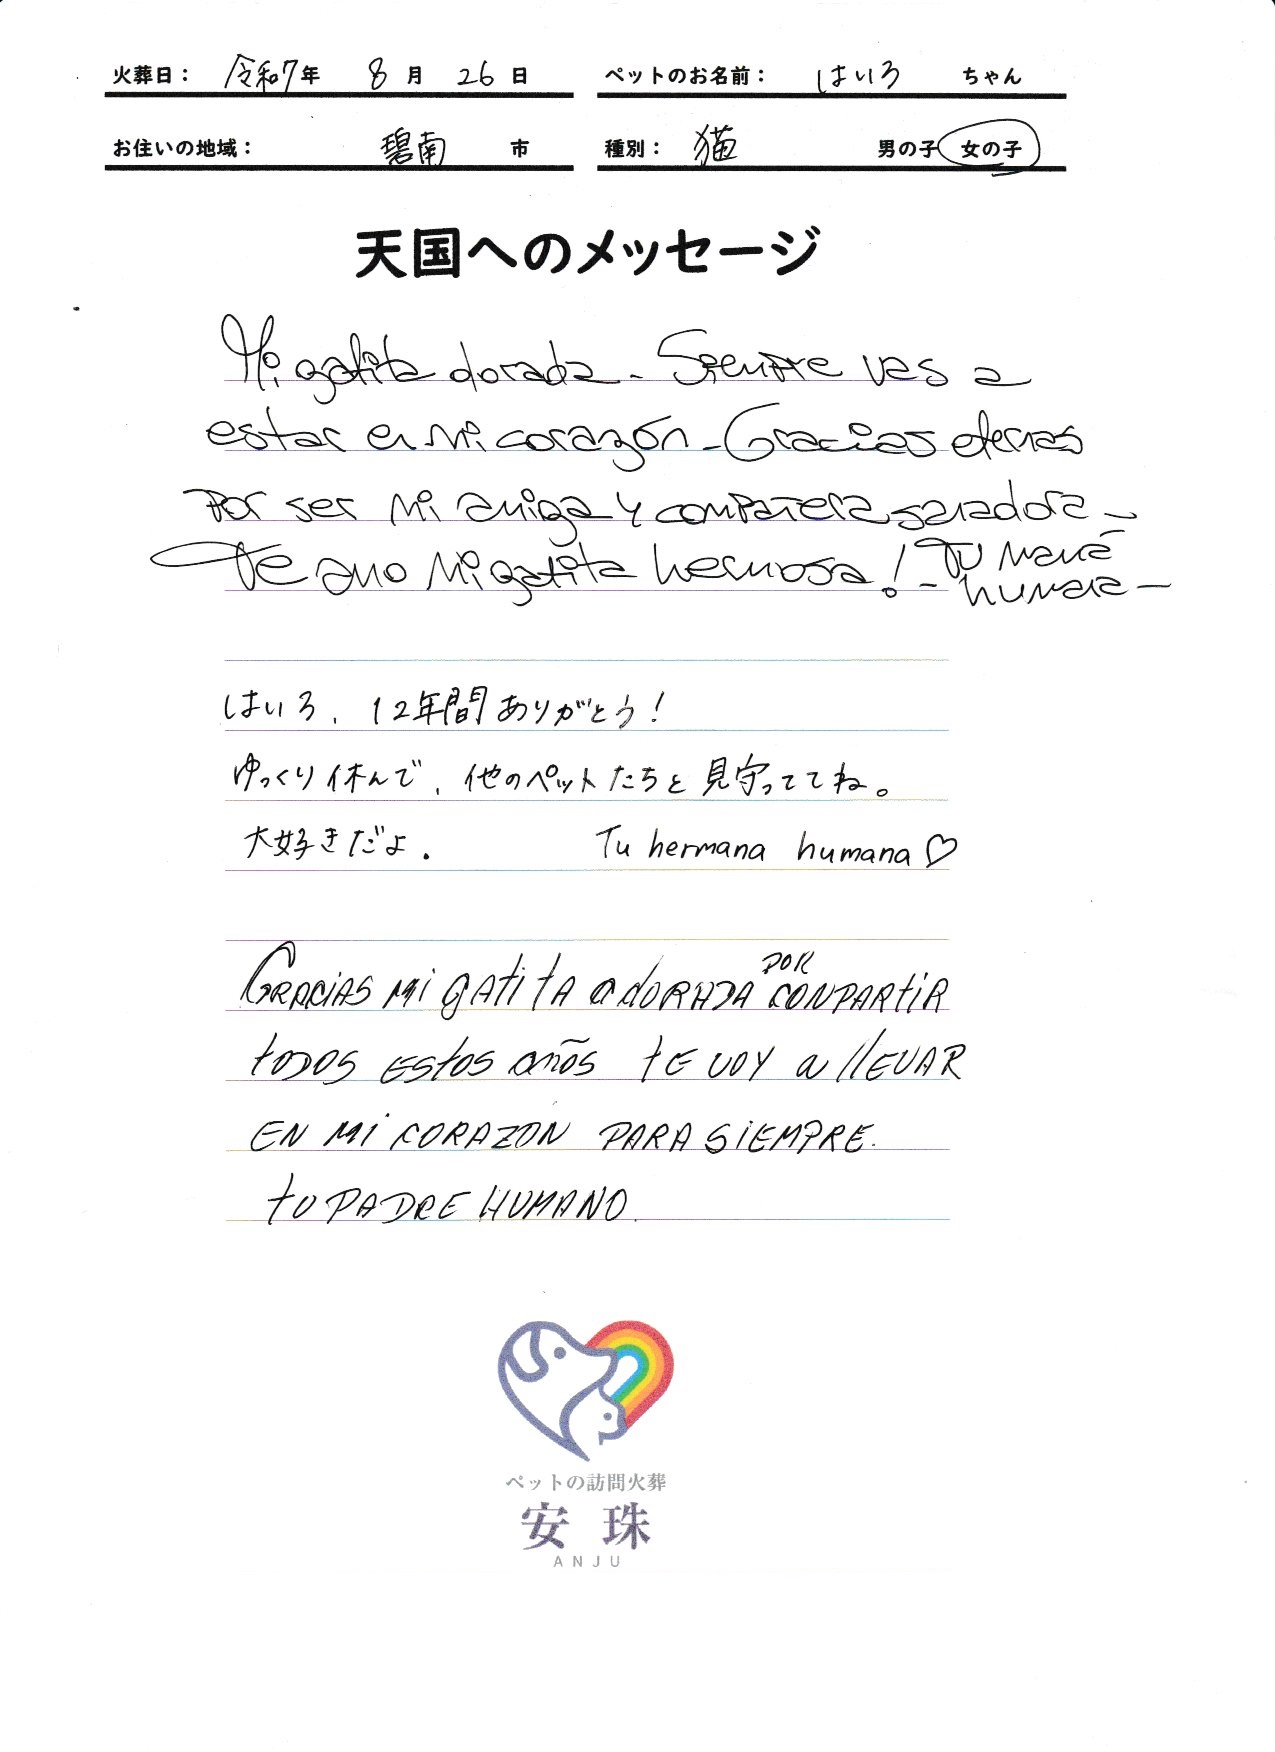 火葬日： 令和7年 8月 26日 ペットのお名前： はいろ ちゃん
お住いの地域： 碧南 市 種別： 猫 男の子 女の子
天国へのメッセージ
Mi gatita dorada - Siempre vas a
estar en mi corazón - Gracias eternas
Por ser mi amiga y compañera sanadora -
Te amo mi gatita hermosa! - Tu mamá
humana -
はいろ、12年間ありがとう！
ゆっくり休んで、他のペットたちと見守っててね。
大好きだよ． Tu hermana humana♡
GRACIAS Mi gAtitA adoRADA POR CONPARtiR
tODOS EStOS añOS tE VOY a llEVAR
EN Mi CORAZON PARA SiEMPRE.
tU PADRE HUMANO.
ペットの訪問火葬
安珠
ANJU